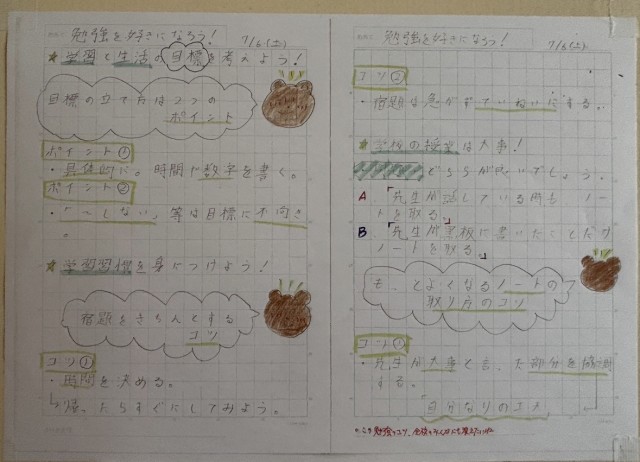 勉強を好きになろう! 7/6(土)
★学習と生活の目標を考えよう!
目標の立て方は2つの
ポイント
ポイント①
・具体的に。時間や数字を書く。
ポイント②
・「〜しない」等は目標に不向き
。
★学習習慣を身につけよう!
宿題をきちんとする
コツ
コツ①
・時間を決める。
帰ったらすぐにしてみよう。
勉強を好きになろう! 7/6(土)
コツ②
・宿題は急がずていねいにする。
★学校の授業は大事!
どちらが良いでしょう。
A.「先生が話している時もノー
トを取る。」
B.「先生が黒板に書いたことだけ
ノートを取る。」
もっとよくなるノートの
取り方のコツ
コツ①
・先生が大事と言った部分を
する。
自分なりのまとめ